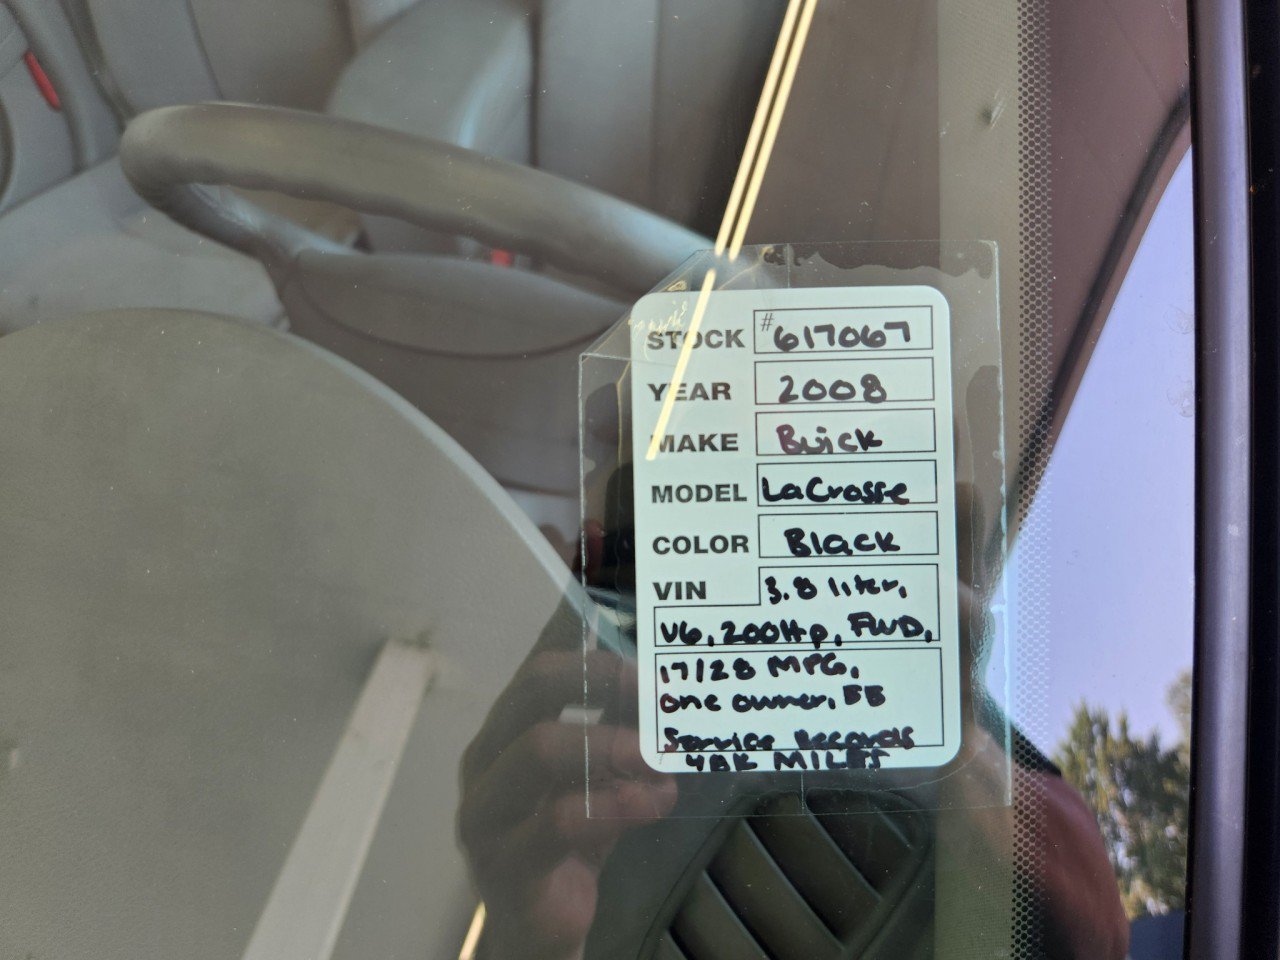 STOCK # 617067
YEAR 2008
MAKE Buick
MODEL LaCrosse
COLOR Black
VIN 3.8 liter,
V6, 200Hp, FWD,
17/28 MPG,
one owner, 55
Service Records
48K MILES